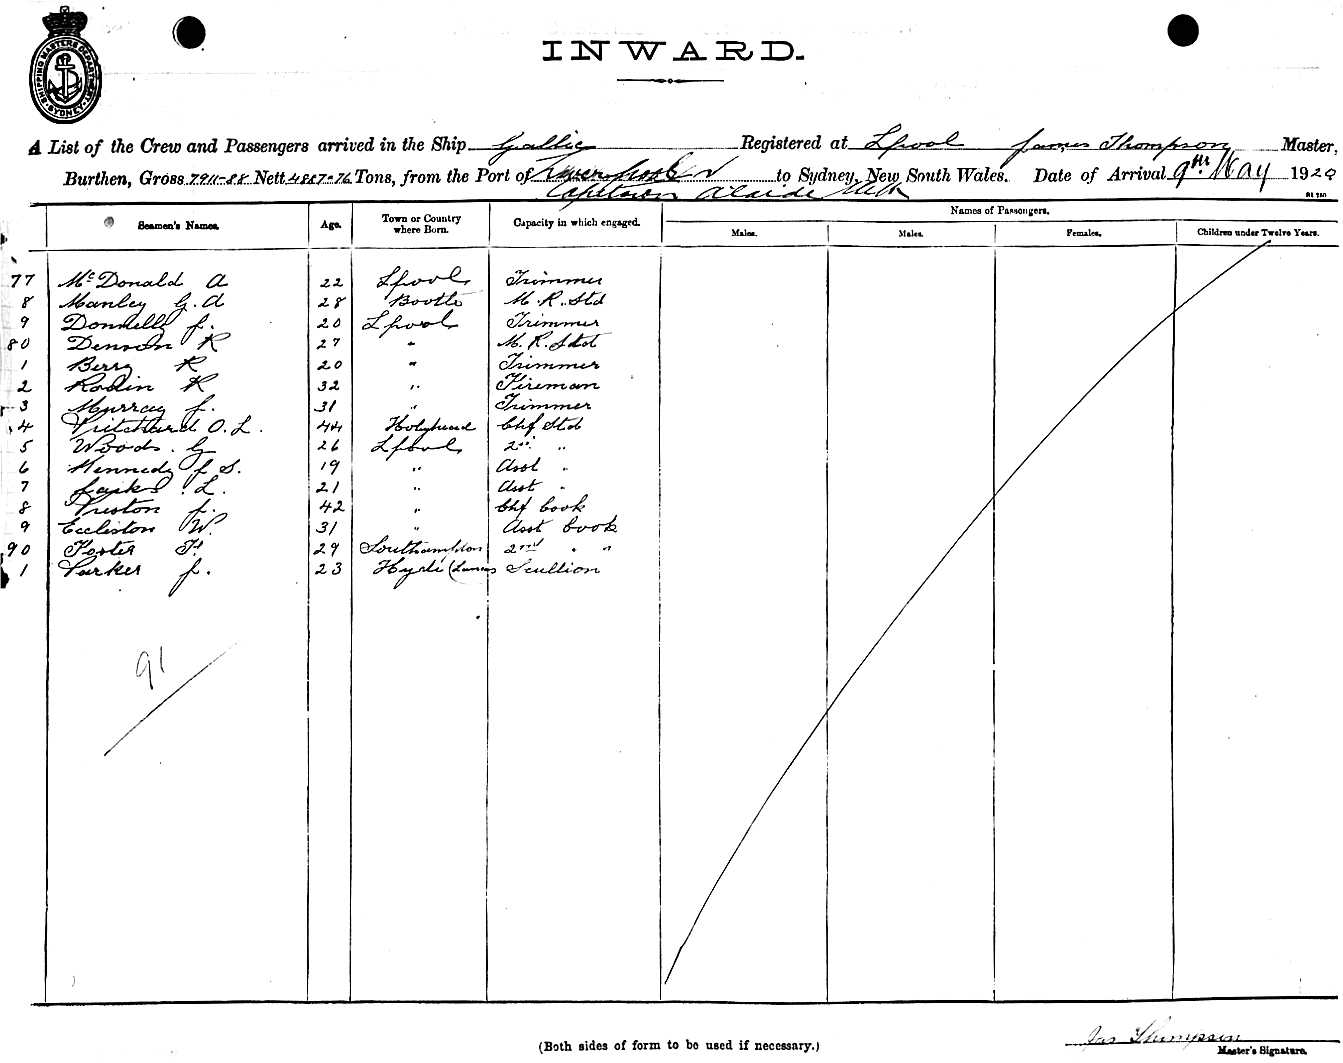 SHIPPING MASTERS DEPARTMENT SYDNEY
INWARD.
A List of the Crew and Passengers arrived in the Ship Gallic Registered at Lpool James Thompson Master,
Burthen, Gross 7911-88 Nett 4887-76 Tons, from the Port of Liverpool to Sydney, New South Wales. Date of Arrival 9th May 1920
Capetown Melb
Seamen's Names. Age. Town or Country where Born. Capacity in which engaged. Names of Passengers.
Males. Males. Females. Children under Twelve Years.
77 McDonald A 22 Lpool Trimmer
8 Manley G. A 28 Bootle M. R. Std
9 Donnelly J. 20 Lpool Trimmer
80 Denson R 27 " M. R. Std
1 Berry R 20 " Trimmer
2 Rodin R 32 " Fireman
3 Murray J. 31 " Trimmer
4 Pritchard O. L. 44 Holyhead Chf Std
5 Woods. G 26 Lpool 2nd "
6 Kennedy J S. 19 " Asst "
7 L. 21 " Asst "
8 Preston J. 42 " Chf Cook
9 Eccleston W. 31 " Asst Cook
90 Foster 29 Southampton 2nd " "
1 Parker J. 23 (Lancs Scullion
91
(Both sides of form to be used if necessary.)
Jas Thompson
Master's Signature.